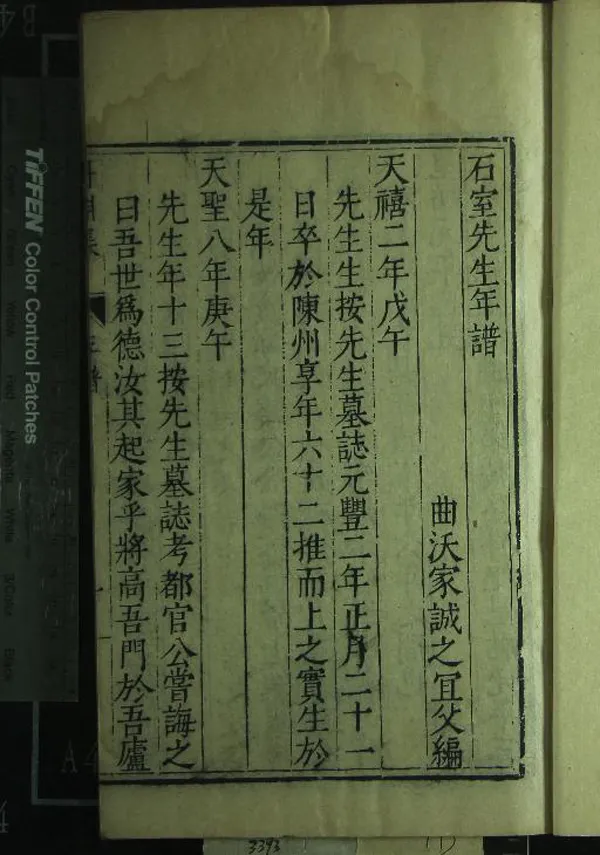 石室先生年譜
曲沃家誠之宜父編
天禧二年戊午
先生生按先生墓誌元豐二年正月二十一
日卒於陳州享年六十二推而上之實生於
是年
天聖八年庚午
先生年十三按先生墓誌考都官公嘗誨之
曰吾世爲德汝其起家乎將高吾門於吾廬
年譜
TIFFEN Color Control Patches
3393